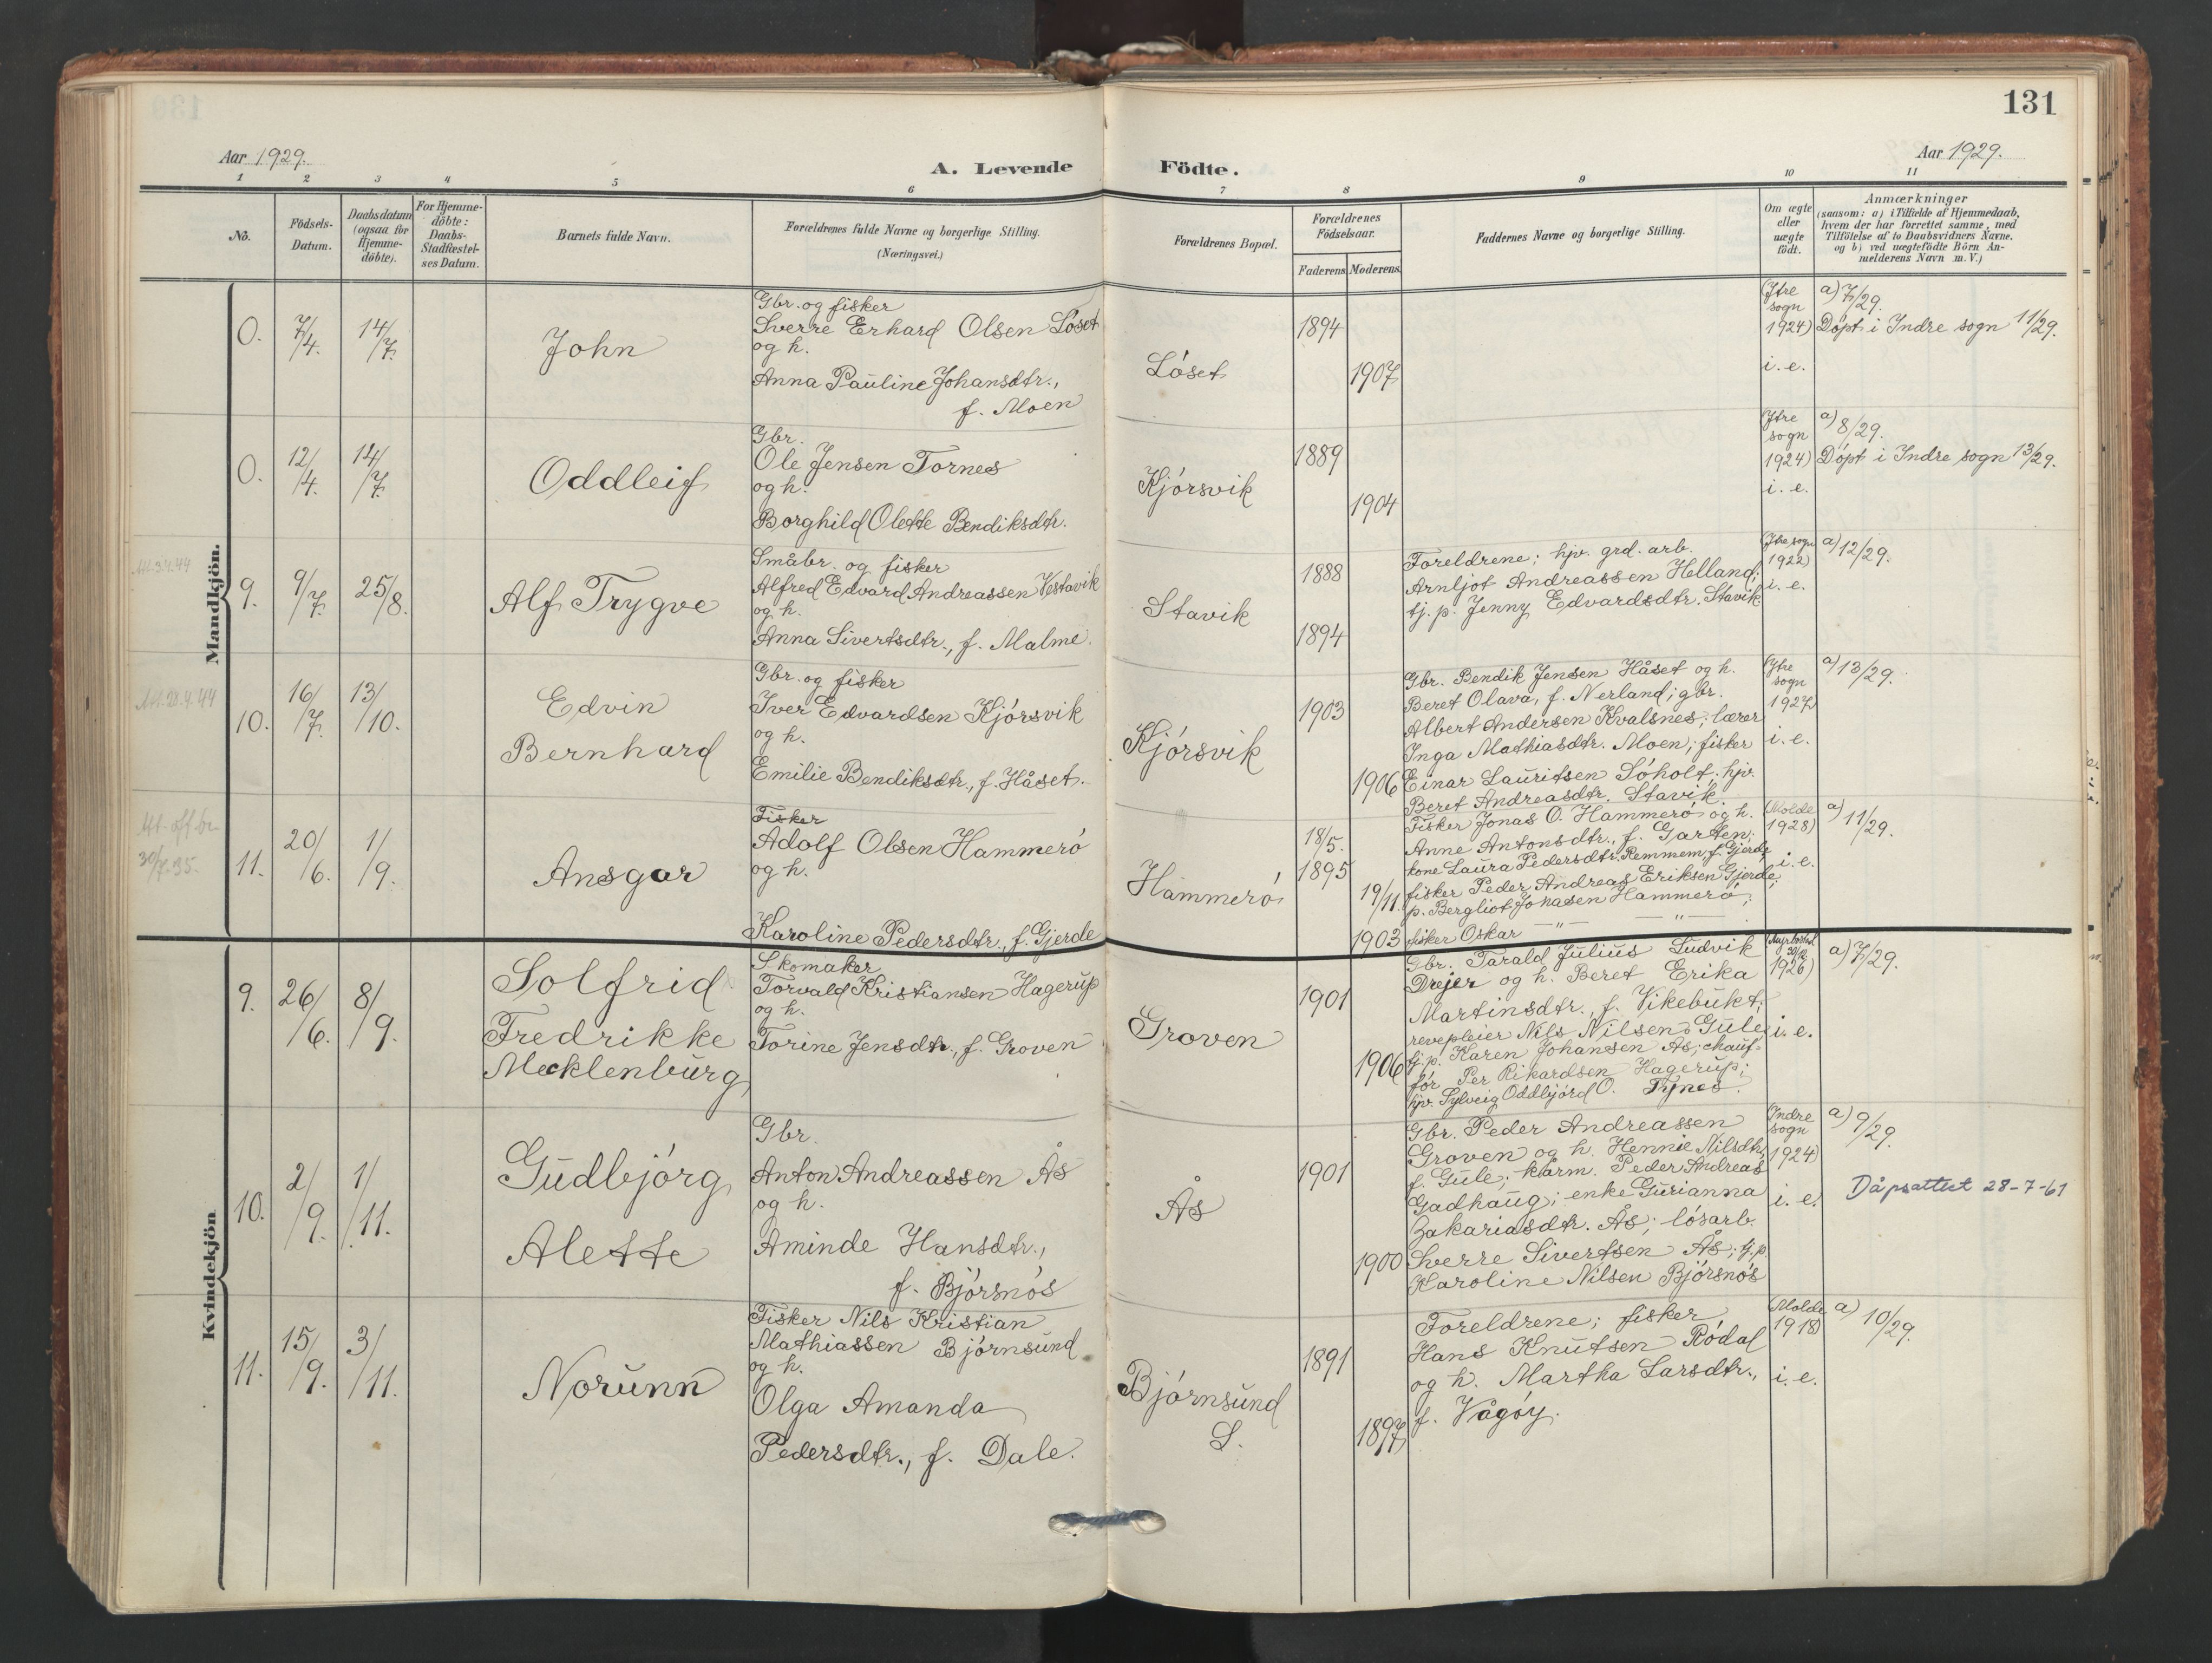 131
Aar 1929.
A. Levende Födte.
Aar 1929.
1 2 3 4 5 6 7 8 9 10 11
No.
Födsels-
Datum.
Daabsdatum
(ogsaa for
Hjemme-
döbte).
For Hjemme-
döbte:
Daabs-
Stadfæstel-
ses Datum.
Barnets fulde Navn.
Forældrenes fulde Navne og borgerlige Stilling.
(Næringsvei.)
Forældrenes Bopæl.
Forældrenes
Födselsaar.
Faderens. Moderens.
Faddernes Navne og borgerlige Stilling.
Om ægte
eller
uægte
födt.
Anmærkninger
(saasom: a) i Tilfælde af Hjemmedaab,
hvem der har forrettet samme, med
Tilföielse af to Daabsvidners Navne,
og b) ved uægtefödte Börn An-
melderens Navn m. V.)
Mandkjön.
0.
7/4.
14/7.
John
Gbr. og fisker
Sverre Erhard Olsen Löset
og h.
Anna Pauline Johansdtr.,
f. Moen
Löset
1894
1907
(Ytre
sogn
1924)
i. e.
a) 7/29.
Döpt i Indre sogn 11/29.
0.
12/4.
14/7.
Oddleif
Gbr.
Ole Jensen Tornes
og h.
Borghild Olette Bendiksdtr.
Kjörsvik
1889
1904
(Ytre
sogn
1924)
i. e.
a) 8/29.
Döpt i Indre sogn 13/29.
9.
9/7.
25/8.
Alf Trygve
Småbr. og fisker
Alfred Edvard Andreassen Vestavik
og h.
Anna Sivertsdtr., f. Malme.
Stavik
1888
1894
Foreldrene; hpv. grd. arb.
Arnljot Andreassen Helland;
tj. p. Jenny Edvardsdtr. Stavik
(Ytre sogn
1922)
i. e.
a) 12/29.
10.
16/7.
13/10.
Edvin
Bernhard
Gbr. og fisker
Iver Edvardsen Kjörsvik
og h.
Emilie Bendiksdtr., f. Håset.
Kjörsvik
1903
1906
Gbr. Bendik Jensen Håset og h.
Beret Olava, f. Nerland; gbr.
Albert Andersen Kvalsnes; lærer
Inga Mathiasdtr. Moen; fisker
Einar Lauritsen Söholt; hpv.
Beret Andreasdtr. Stavik.
(Ytre
sogn
1927)
i. e.
a) 13/29.
30/7.35.
11.
20/6.
1/9.
Ansgar
Fisker
Adolf Olsen Hammerö
og h.
Karoline Pedersdtr., f. Gjerde
Hammerö
18/5.
1895
19/11.
1903
Fisker Jonas O. Hammerö og h.
Anne Antonsdtr., f. Garten;
kone Laura Pedersdtr. Remmem, f. Gjerde;
fisker Peder Andreas Eriksen Gjerde;
p. Bergliot Johasen Hammerö;
fisker Oskar —"— —"—
(Molde
1928)
i. e.
a) 11/29.
Kvindekjön
9.
26/6.
8/9.
Solfrid
Fredrikke
Mecklenburg
Skomaker
Torvald Kristiansen Hagerup
og h.
Torine Jensdtr., f. Groven
Groven
1901
1906
Gbr. Tarald Julius Ludvik
Drejer og h. Beret Erika
Martinsdtr., f. Vikebukt;
revepleier Nils Nilsen Gule;
tj. p. Karen Johansen Ås; chauf-
för Per Rikardsen Hagerup;
hpv. Sylveig Oddbjörd O. Tynes.
1926)
i. e.
a) 7/29.
10.
2/9.
1/11.
Gudbjörg
Alette
Gbr.
Anton Andreassen Ås
og h.
Aminde Hansdtr.,
f. Björsnös
Ås
1901
1900
Gbr. Peder Andreassen
Groven og h. Hennie Nilsdtr.
f. Gule; karm. Peder Andreas
Gadhaug; enke Gurianna
Zakariasdtr. Ås; lösarb.
Sverre Sivertsen Ås; tj. p.
Karoline Nilsen Björsnös
(Indre
sogn
1924)
i. e.
a) 9/29.
Dåpsattest 28-7-61
11.
15/9.
3/11.
Norunn
Fisker Nils Kristian
Mathiassen Björnsund
og h.
Olga Amanda
Pedersdtr., f. Dale.
Björnsund
S.
1891
1897
Foreldrene; fisker
Hans Knutsen Rödal
og h. Martha Larsdtr.,
f. Vågöy.
(Molde
1918)
i. e.
a) 10/29.